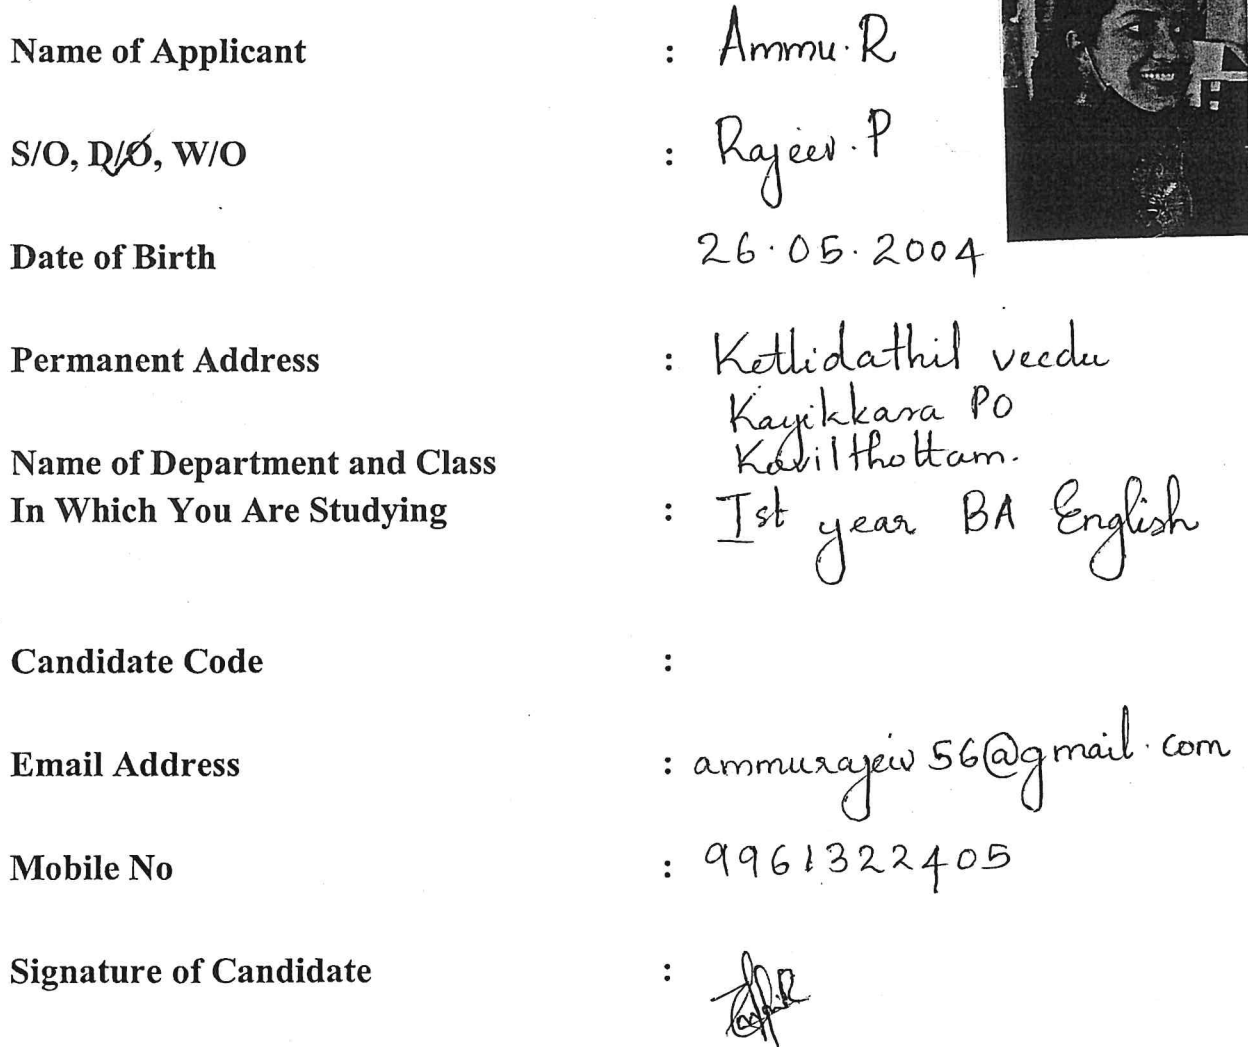 Name of Applicant : Ammu.R
S/O, D/O, W/O : Rajeev.P
Date of Birth 26.05.2004
Permanent Address : Kettidathil veedu
Kayikkara PO
Kovilthottam.
Name of Department and Class
In Which You Are Studying : Ist year BA English
Candidate Code :
Email Address : ammurajeiv56@gmail.com
Mobile No : 9961322405
Signature of Candidate :